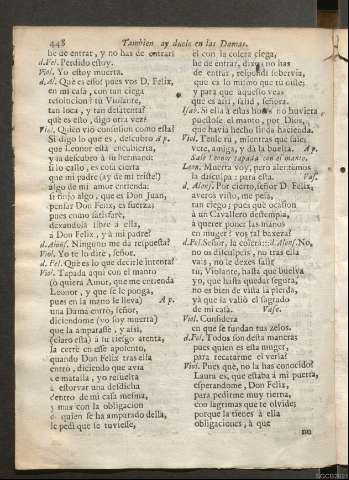 448 Tambien ay duelo en las Damas.
he de entrar, y no has de entrar:
d.Fel. Perdido estoy.
Viol. Yo estoy muerta.
d.Al. Què es esso? pues vos D. Felix,
en mi casa, con tan ciega
resolucion? tù Violante,
tan loca, y tan desatenta?
què es esso, digo otra vez?
Viol. Quien viò confusion como esta?
Si digo lo que es, descubro Ap.
que Leonor està encubierta,
y la descubro à su hermano:
si lo callo, es cosa cierta
que mi padre (ay de mi triste!)
algo de mi amor entienda:
si finjo algo, que es Don Juan,
pensar Don Felix, es fuerza;
pues como satisfarè,
dexandola libre à ella,
à Don Felix, y à mi padre?
d.Alons. Ninguno me da respuesta?
Viol. Yo te lo dirè, señor.
d.Fel. Què es lo que decirle intenta?
Viol. Tapada aqui con el manto
(ò quiera Amor, que me entienda
Leonor, y que se le ponga,
pues en la mano le lleva) Ap.
una Dama entrò, señor,
diciendome (yo soy muerta)
que la amparasse, y assi,
(claro està) à su riesgo atenta,
la cerrè en esse aposento,
quando Don Felix tras ella
entrò, diciendo que avia
de matarla, yo resuelta
à estorvar una desdicha
dentro de mi casa mesma,
y mas con la obligacion
de quien se ha amparado della,
le pedì que se tuviesse,
èl con la colera ciega,
he de entrar, dixo, no has
de entrar, respondì sobervia,
que es lo mismo que tù oiste;
y para que aquesto veas
que es assi, salid, señora.
Isab. Si ella à estas horas no huviera
puestose el manto, por Dios,
que havia hecho linda hacienda.
Viol. Tente tù, mientras que sale;
vete, amiga, y dà la buelta. Ap.
Sale Leonor tapada con el manto.
Leon. Muerta voy, pero alentemos
la disculpa: para esta. Vas.
d.Alons. Por cierto, señor D. Felix,
averos visto, me pesa,
tan ciego; pues què ocasion
à un Cavallero destempla,
à querer poner las manos
en muger? vos tal baxeza?
d.Fel. Señor, la colera::- d.Alons. No,
no os disculpeis, no tras ella
vais, no le dexes salir
tù, Violante, hasta que buelva
yo, que hasta quedar segura,
no es bien de vista la pierda,
yà que la valiò el sagrado
de mi casa. Vase.
Viol. Considera
en què se fundan tus zelos.
d.Fel. Todos son desta manera;
pues quien es essa muger,
para recatarme el verla?
Viol. Pues què, no la has conocido?
Laura es, que estaba à mi puerta,
esperandome, Don Felix,
para pedirme muy tierna,
con lagrimas que te olvide;
porque la tienes à ella
obligaciones, à que
no